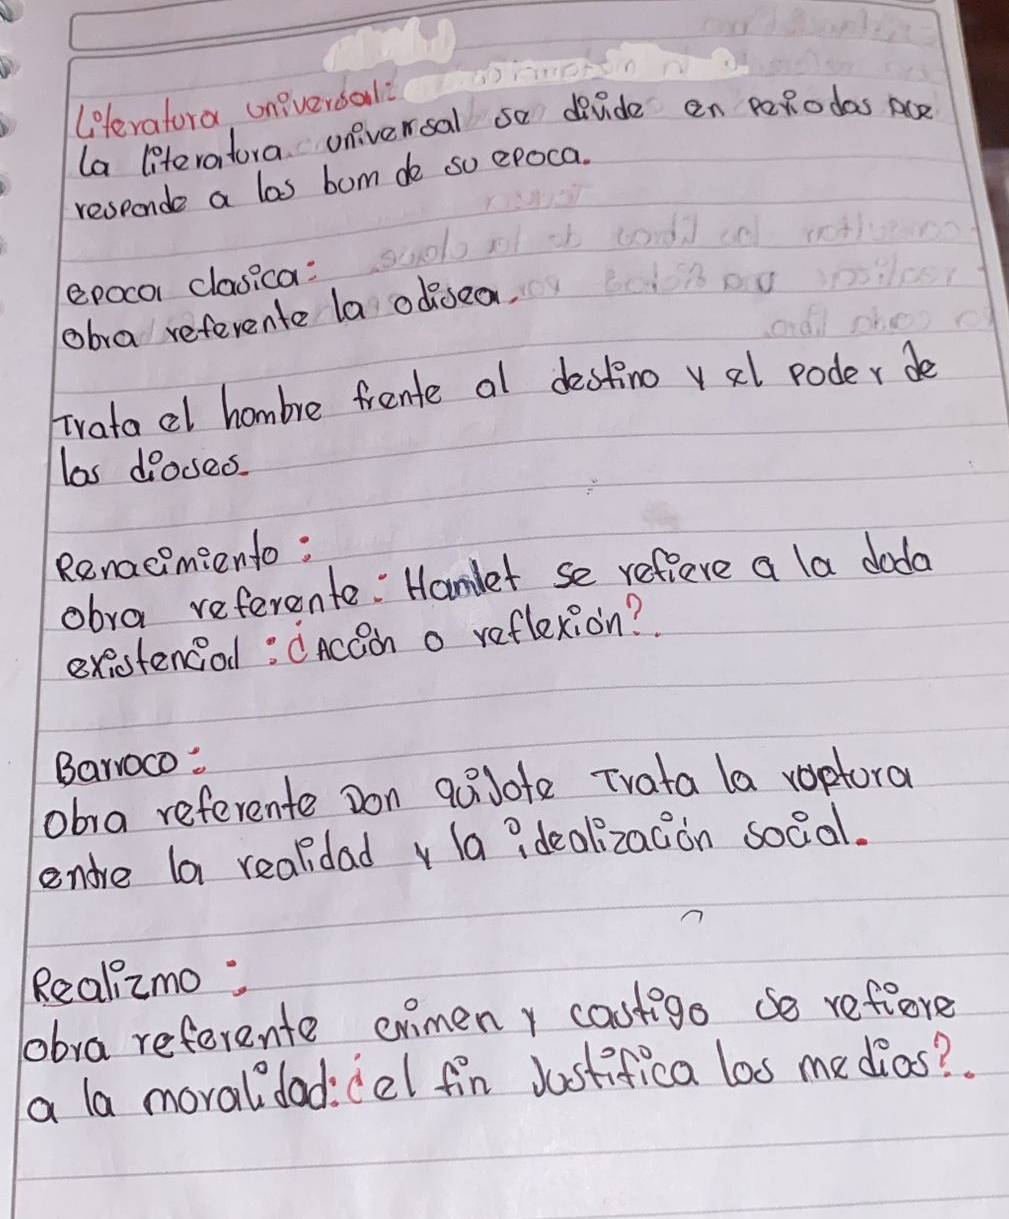 Literatura universal:
La literatura universal se divide en periodos que
responde a los bum de su epoca.
epoca clasica:
obra referente la odisea.
Trata el hombre frente al destino y el poder de
los dioses.
Renacimiento:
obra referente: Hamlet se refiere a la duda
existencial: ¿Acción o reflexión?.
Barroco:
Obra referente Don quijote Trata la ruptura
entre la realidad y la idealización social.
Realizmo:
obra referente crimen y castigo se refiere
a la moralidad: ¿el fin Justifica los medios?.